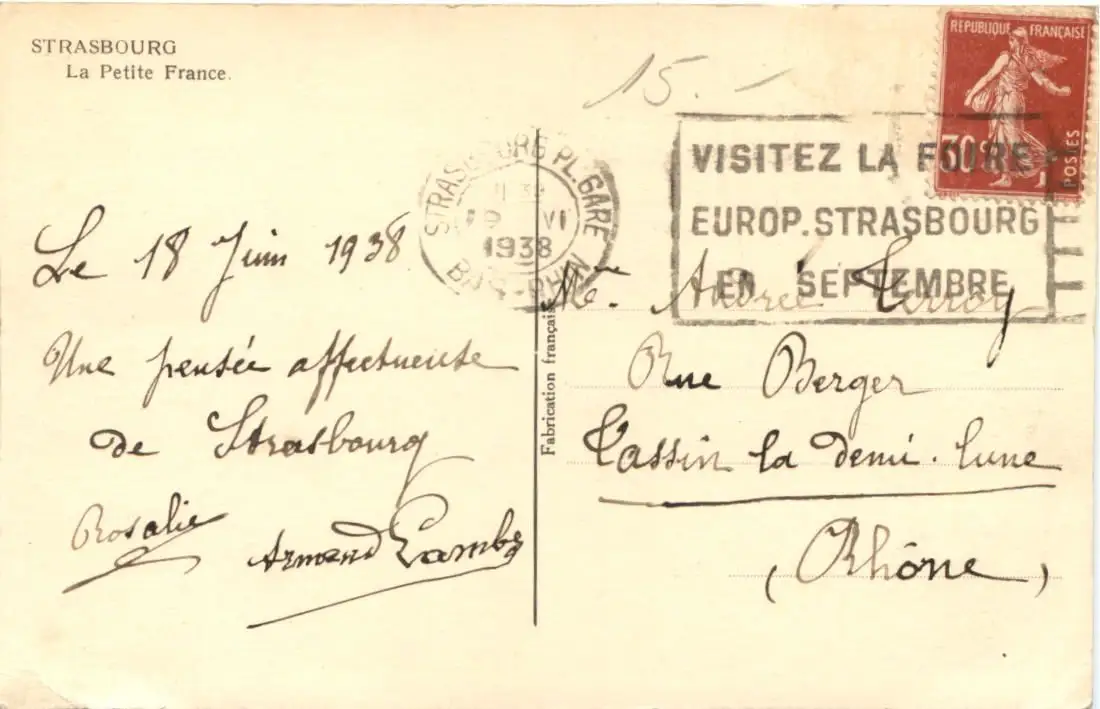 STRASBOURG
La Petite France.
15.-
REPUBLIQUE FRANÇAISE
30c
POSTES
STRASBOURG PL. GARE
19 VI
1938
BAS-RHIN
VISITEZ LA FOIRE
EUROP. STRASBOURG
EN SEPTEMBRE
Le 18 Juin 1938
Une pensée affectueuse
de Strasbourg
Rosalie
Armand
Fabrication française
Andrée
Rue Berger
Tassin la demi-lune
(Rhône)